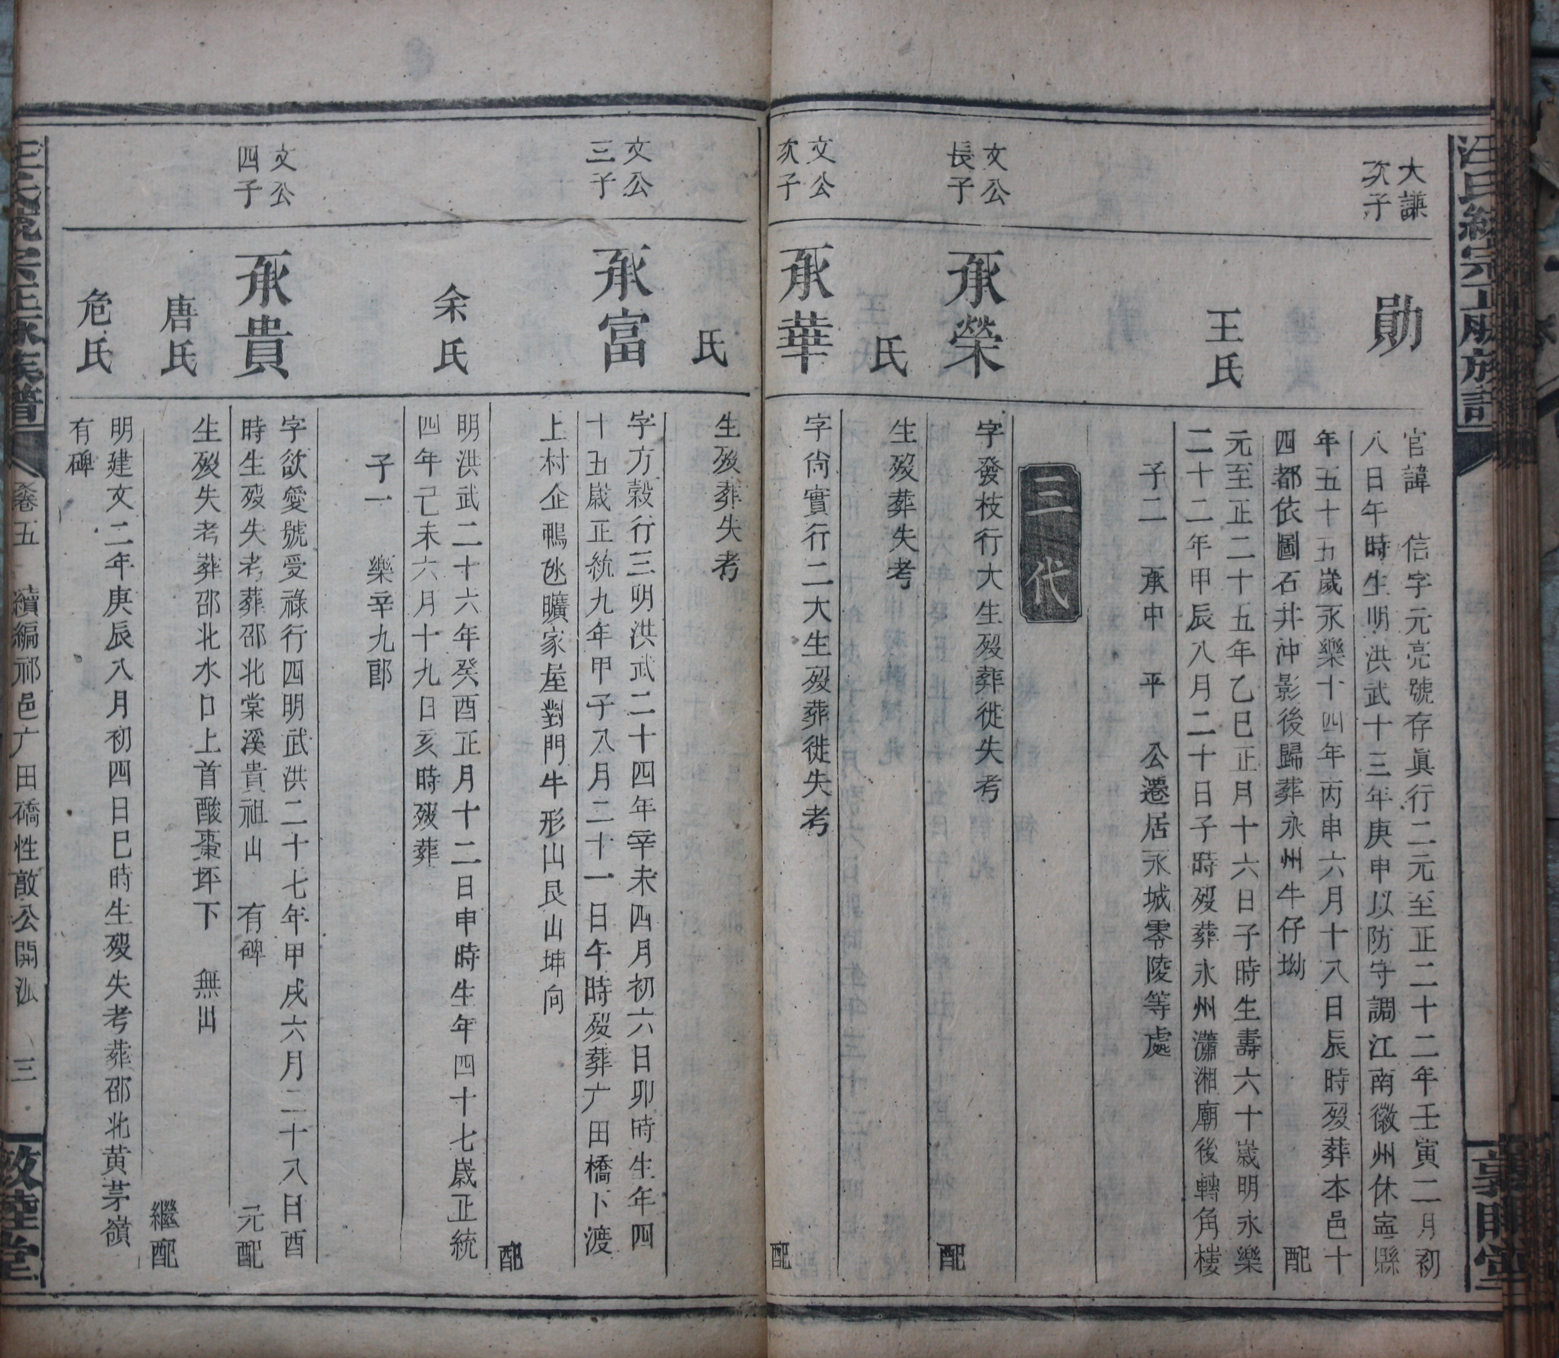 大謙
次子
勛
官諱　信字元亮號存眞行二元至正二十二年壬寅二月初
八日午時生明洪武十三年庚申以防守調江南徽州休寧縣
年五十五歲永樂十四年丙申六月十八日辰時歿葬本邑十
四都依圖石井沖影後歸葬永州牛仔坳　配
王氏
元至正二十五年乙巳正月十六日子時生壽六十歲明永樂
二十二年甲辰八月二十日子時歿葬永州瀟湘廟後轉角樓
子二　承中　平　公遷居永城零陵等處
三代
文公
長子
承榮
字發枝行大生歿葬徙失考　配
氏
生歿葬失考
文公
次子
承華
字尙實行二大生歿葬徙失考　配
氏
生歿葬失考
文公
三子
承富
字方穀行三明洪武二十四年辛未四月初六日卯時生年四
十五歲正統九年甲子八月二十一日午時歿葬广田橋下渡
上村企鴨氹曠家屋對門牛形山艮山坤向　配
余氏
明洪武二十六年癸酉正月十二日申時生年四十七歲正統
四年己未六月十九日亥時歿葬
子一　樂幸九郎
文公
四子
承貴
字欲愛號受祿行四明武洪二十七年甲戌六月二十八日酉
時生歿失考葬邵北棠溪貴祖山　有碑　元配
唐氏
生歿失考葬邵北水口上首酸棗坪下　無出　繼配
危氏
明建文二年庚辰八月初四日巳時生歿失考葬邵北黄茅嶺
有碑
卷五　續編祁邑广田橋性敵公開派　三
敦睦堂